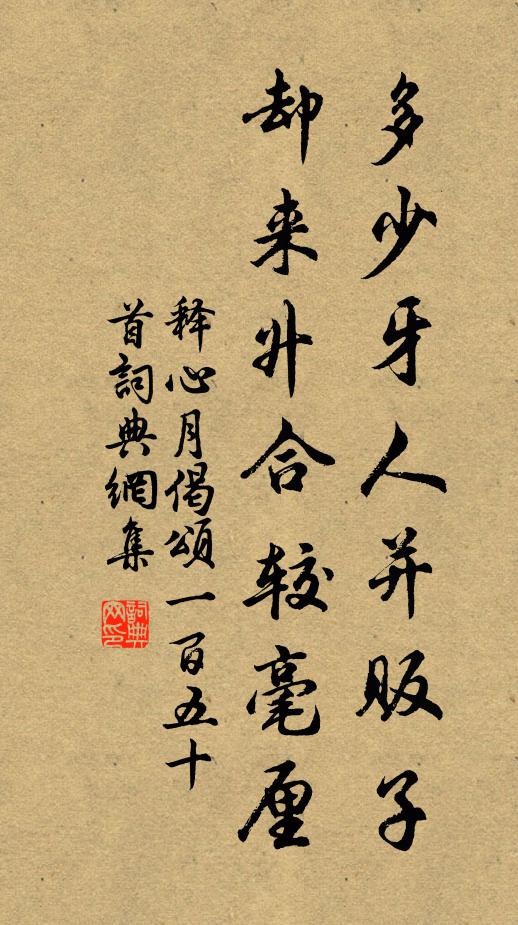 多少牙人并販子
却来升合较毫厘
释心月偈頌一百五十
首詞典網集
詞典
网印